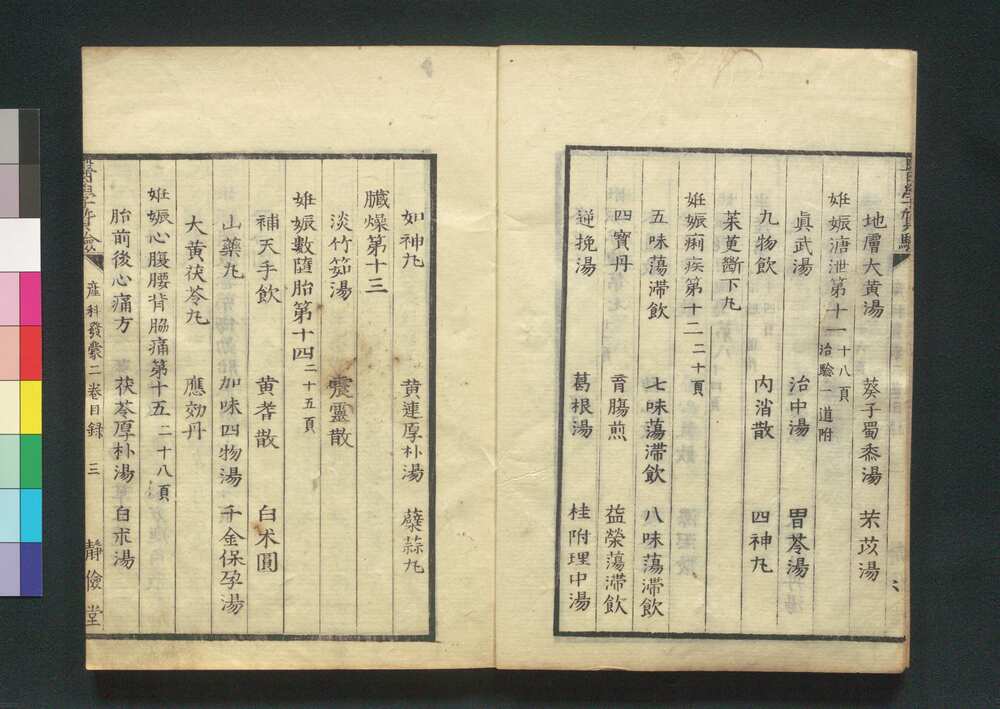 地膚大黄湯 葵子蜀黍湯 芣苡湯
姙娠溏泄第十一 十八頁 治驗一道附
眞武湯 治中湯 胃苓湯
九物飲 内消散 四神丸
茱萸斷下丸
姙娠痢疾第十二 二十頁
五味蕩滯飲 七味蕩滯飲 八味蕩滯飲
四寶丹 育腸煎 益榮蕩滯飲
逆挽湯 葛根湯 桂附理中湯
如神丸 黄連厚朴湯 蘗蒜丸
臓燥第十三
淡竹茹湯 震靈散
姙娠數墮胎第十四 二十五頁
補天手飲 黄芩散 白朮圓
山藥丸 加味四物湯 千金保孕湯
大黄茯苓丸 應効丹
姙娠心腹腰背脇痛第十五 二十八頁
胎前後心痛方 茯苓厚朴湯 白朮湯
産科發蒙二卷目録 三 靜儉堂